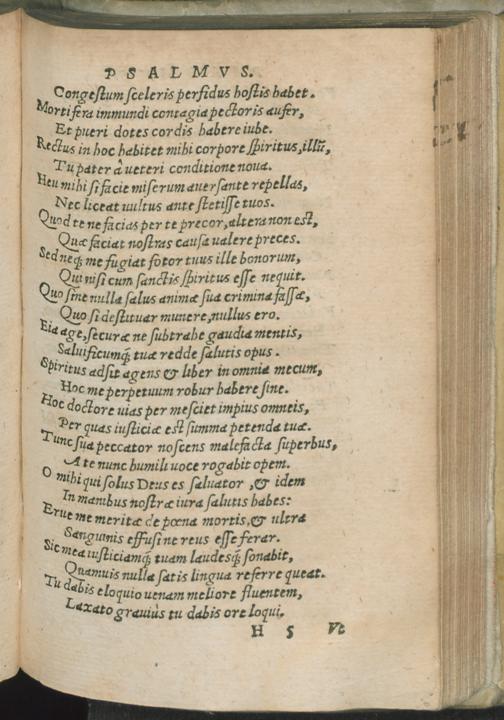 PSALMVS.
Congestum sceleris perfidus hostis habet.
Mortifera immundi contagia pectoris aufer,
Et pueri dotes cordis habere iube.
Rectus in hoc habitet mihi corpore spiritus, illũ,
Tu pater à ueteri conditione noua.
Heu mihi si facie miserum auersante repellas,
Nec liceat uultus ante stetisse tuos.
Quod te ne facias per te precor, altera non est,
Quæ faciat nostras causa ualere preces.
Sed neq; me fugiat fotor tuus ille bonorum,
Qui nisi cum sanctis spiritus esse nequit.
Quo sine nulla salus animæ sua crimina fassæ,
Quo si destituar munere, nullus ero.
Eia age, securæ ne subtrahe gaudia mentis,
Saluificumq; tuæ redde salutis opus.
Spiritus adsit agens & liber in omnia mecum,
Hoc me perpetuum robur habere sine.
Hoc doctore uias per me sciet impius omneis,
Per quas iusticiæ est summa petenda tuæ.
Tunc sua peccator noscens malefacta superbus,
A te nunc humili uoce rogabit opem.
O mihi qui solus Deus es saluator, & idem
In manibus nostræ iura salutis habes:
Erue me meritæ de pœna mortis, & ultra
Sanguinis effusi ne reus esse ferar.
Sic mea iusticiamq; tuam laudesq; sonabit,
Quamuis nulla satis lingua referre queat.
Tu dabis eloquio uenam meliore fluentem,
Laxato grauiùs tu dabis ore loqui.
H 5 Vt